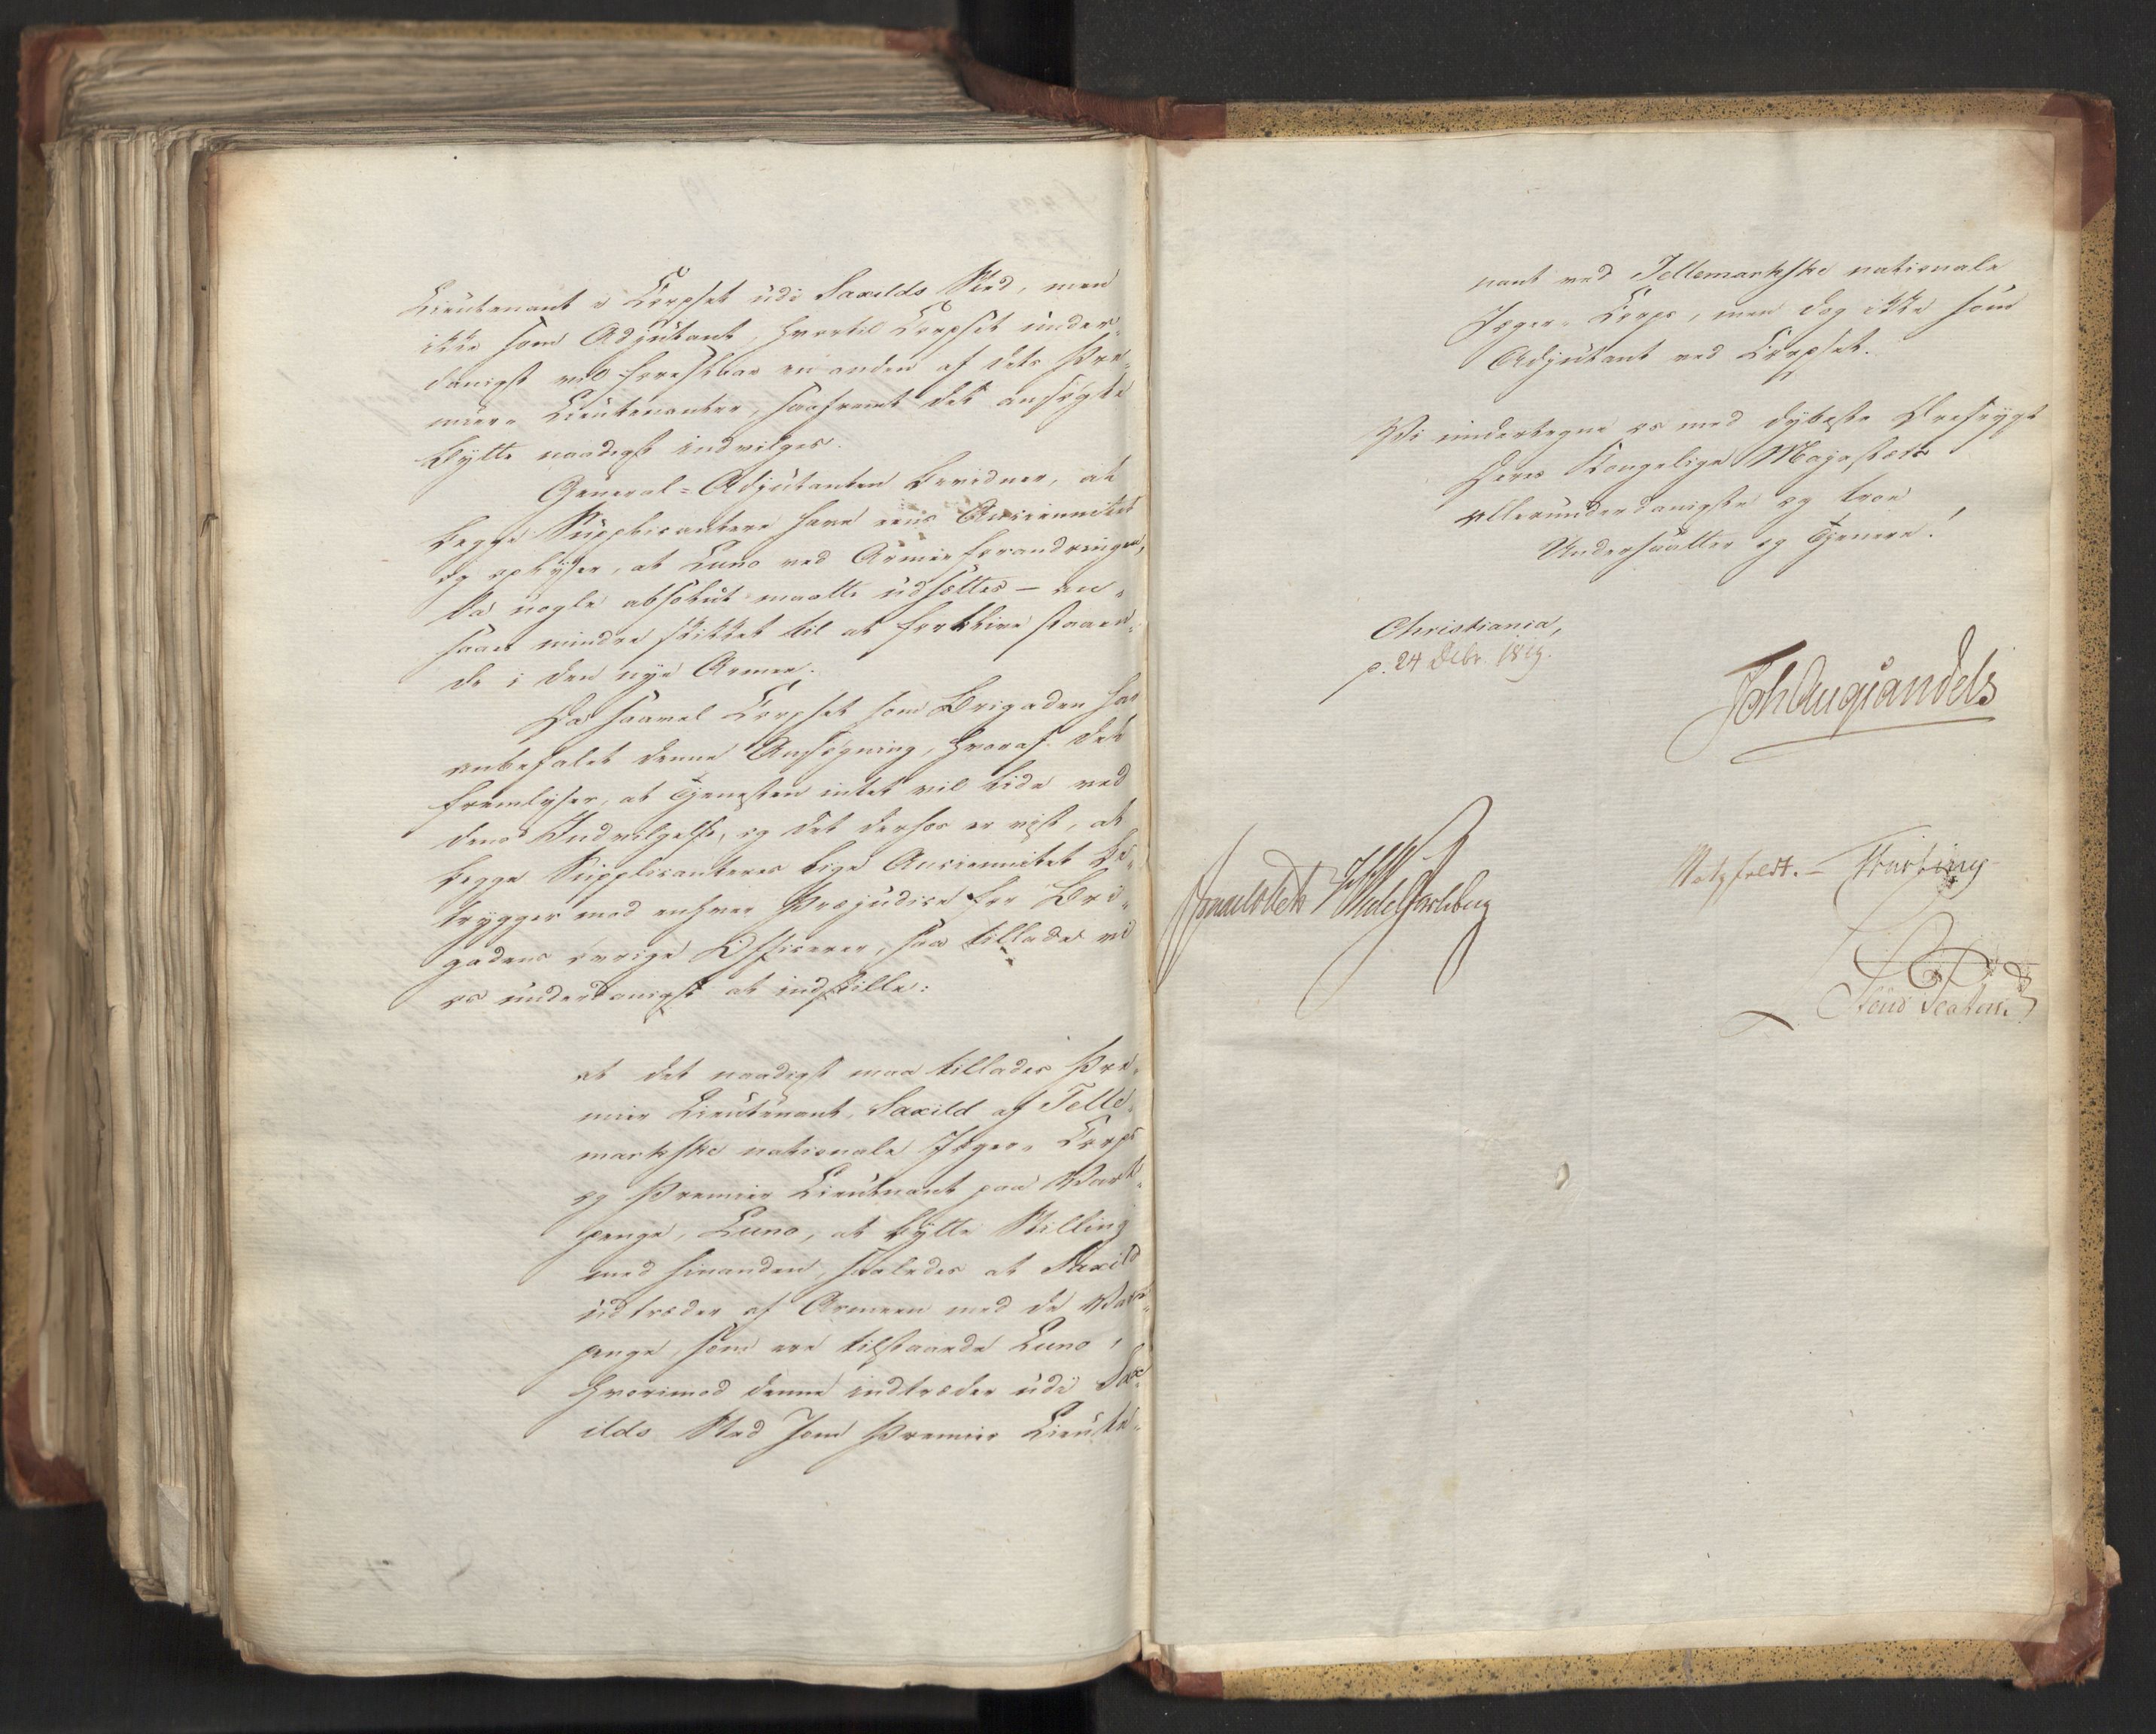 Lieutenant i Corpset udi Saxilds Sted, men
ikke som Adjutant, hvortil Corpset under-
danigst vil foreslaae en anden af dets Pre-
mier-Lieutenanter, saafremt det ansøgte
Bytte naadigst indvilges.
General-Adjutanten bevidner, at
begge Supplicantere have eens Anciennitet
og oplyser, at Luno ved Armeeforandringen,
da nogle absolut maatte udsættes – an-
saaes mindre skikket til at forblive staaen-
de i den nye Armee.
Da saavel Corpset som Brigaden har
anbefalet denne Ansøgning, hvoraf det
fremlyser, at Tjenesten intet vil lide ved
dens Indvilgelse, og det derhos er vist, at
begge Supplicanteres lige Anciennitet be-
trygger mod enhver Præjudice for Bri-
gadens øvrige Officerer, saa tillade vi
os underdanigst at indstille:
at det naadigst maa tillades Pre-
mier Lieutenant Saxild af Telle-
markske nationale Jæger-Corps
og Premier Lieutenant paa Vart-
penge, Luno, at bytte Stilling
med hinanden, saaledes at Saxild
udtræder af Armeen med de Vart-
penge, som ere tilstaaede Luno,
hvorimod denne indtræder udi Sax-
ilds Sted som Premier Lieute-
nant ved Tellemarkske nationale
Jæger-Corps, men dog ikke som
Adjutant ved Corpset.
Vi undertegne os med dybeste Ærefrygt
Deres Kongelige Majestæts
allerunderdanigste og troe
Undersaatter og Tjenere!
Christiania,
p. 24 Debr. 1819.
Joh Aug Sandels
Sommerfeldt Wedel Jarlsberg
Motzfeldt. – Fasting